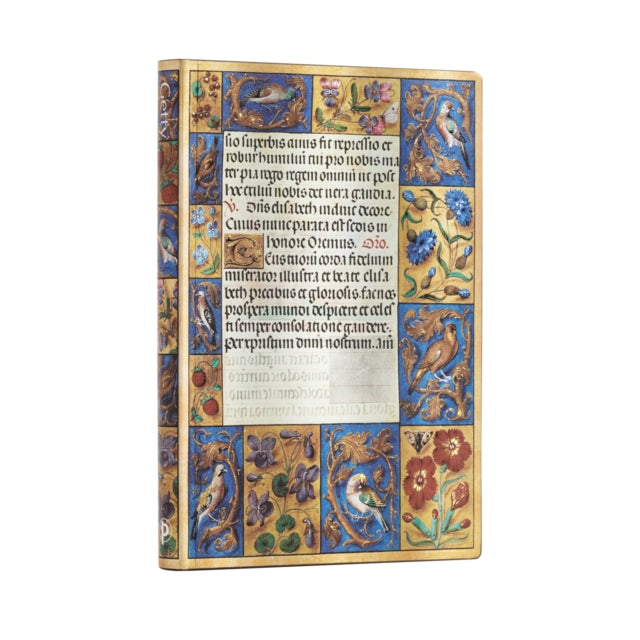 Getty
sio superbis cuius fit repressio et
robur humiliũ tui pro nobis ma
ter pia rogo regem omniũ ut post
hoc exiliũ nobis det uera gaudia.
V. Dñs elisabeth induit decore
Cuius nunc parata est sedis in
honore Oremus. Oro.
Deus tuorũ corda fidelium
miserator illustra et beate elisa
beth precibus et gloriosis. fac nos
prospera mundi despicere et celes
ti semper consolatione gaudere.
Per xpristum dnm nostrum. am